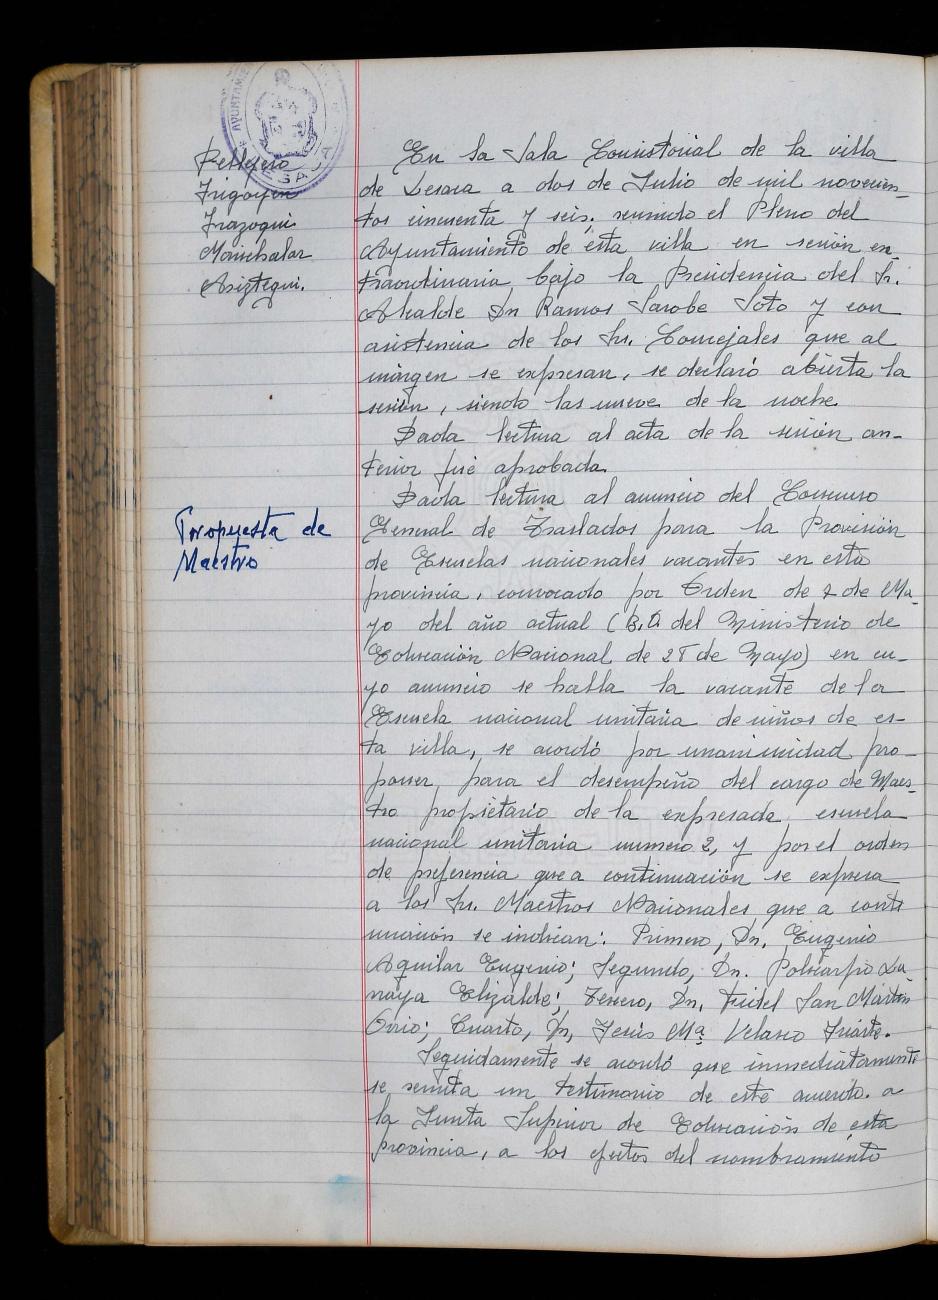 AYUNTAMIE
LESACA
Pellejero
Irigoyen
Irazoqui
Marichalar
Ariztegui.
En la Sala Consistorial de la villa
de Lesaca a dos de Julio de mil novecien-
tos cincuenta y seis; reunido el Pleno del
Ayuntamiento de ésta villa en sesión ex-
traordinaria bajo la Presidencia del Sr.
Alcalde Dn Ramos Sarobe Soto y con
asistencia de los Srs. Concejales que al
márgen se expresan, se declaró abierta la
sesión, siendo las nueve de la noche.
Dada lectura al acta de la sesión an-
terior fué aprobada.
Propuesta de
Maestro
Dada lectura al anuncio del Concurso
General de Traslados para la Provisión
de Escuelas nacionales vacantes en esta
provincia, convocado por Orden de 7 de Ma-
yo del año actual (B.O. del Ministerio de
Educación Nacional de 28 de Mayo) en cu-
yo anuncio se halla la vacante de la
Escuela nacional unitaria de niños de es-
ta villa, se acordó por unanimidad pro-
poner para el desempeño del cargo de Maes-
tro propietario de la expresada escuela
nacional unitaria numero 2, y por el orden
de preferencia que a continuación se expresa
a los Srs. Maestros Nacionales que a conti
nuación se indican: Primero, Dn. Eugenio
Aguilar Eugenio; Segundo, Dn. Policarpo La
naya Elizalde; Tercero, Dn. Fidel San Martín
Osrio; Cuarto, Dn, Jesús Mª Velasco Iriarte.
Seguidamente se acordó que inmediatamente
se remita un testimonio de este acuerdo. a
la Junta Superior de Educación de ésta
provincia, a los efectos del nombramiento